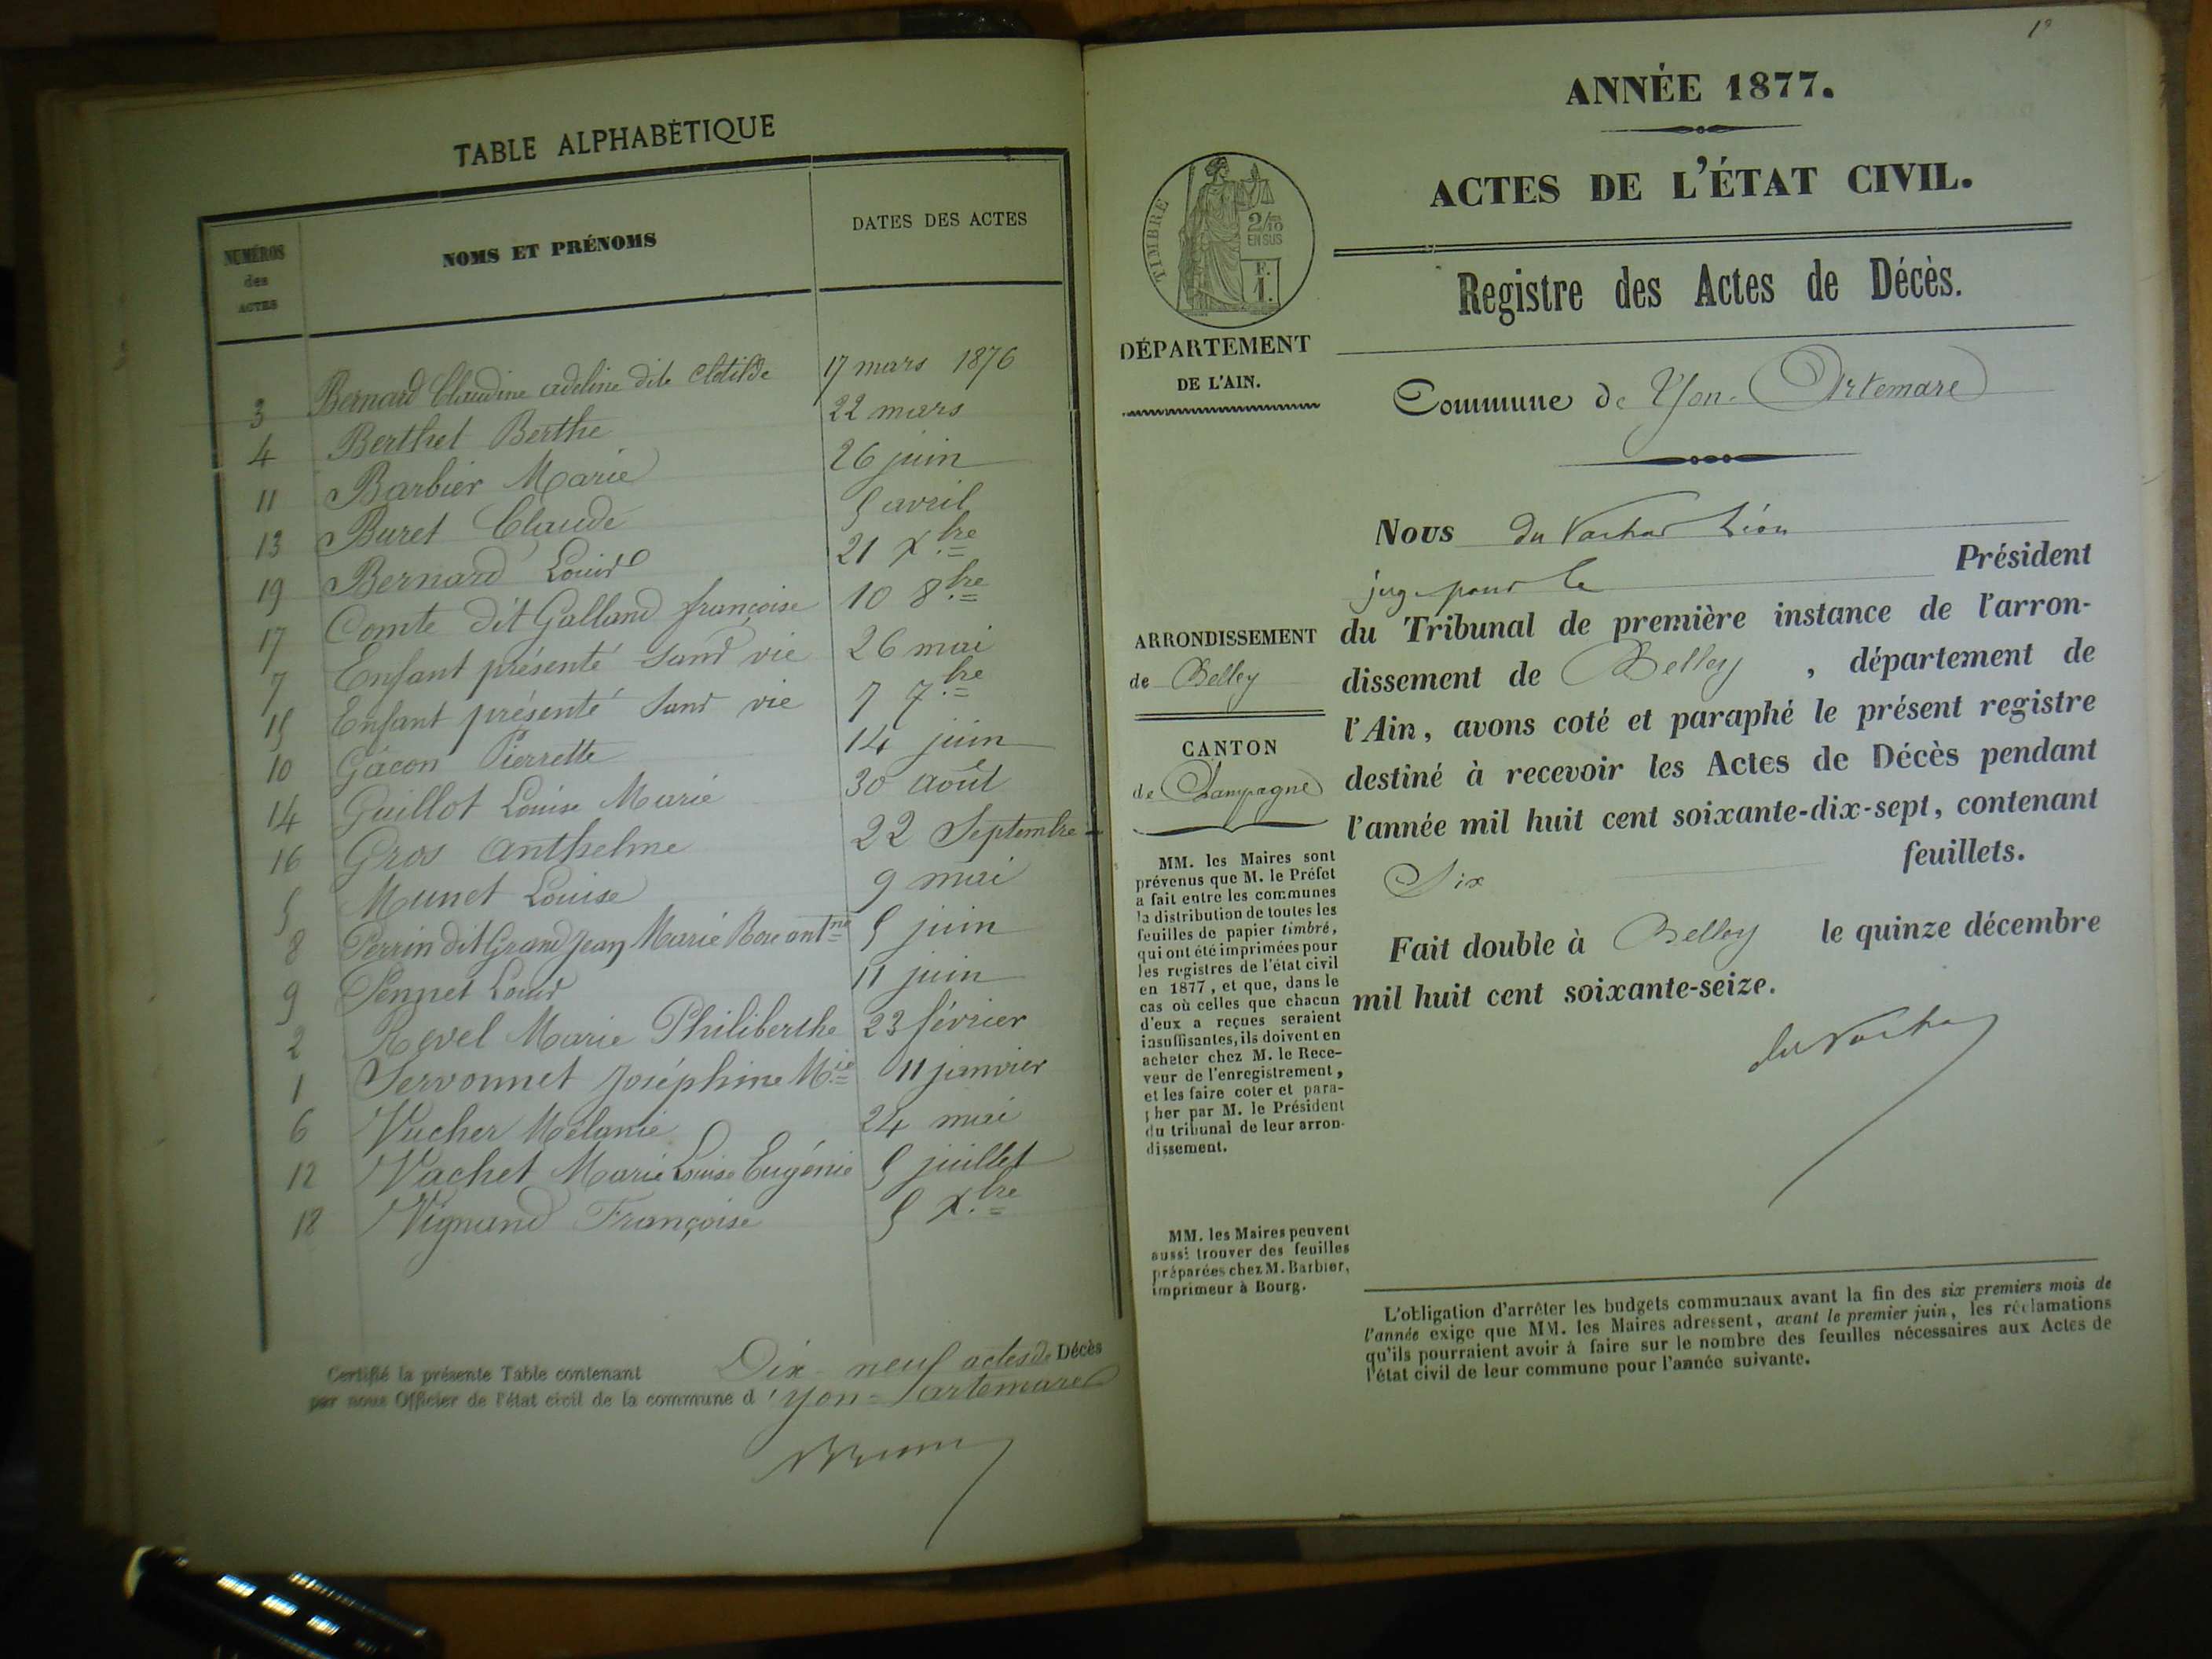 TABLE ALPHABÉTIQUE
NUMÉROS des ACTES
NOMS ET PRÉNOMS
DATES DES ACTES
3 Bernard Claudine adeline dite Clotilde 17 mars 1876
4 Berthet Berthe 22 mars
11 Barbier Marie 26 juin
13 Buret Claude 5 avril
19 Bernard Louise 21 Xbre
17 Comte dit Galland françoise 10 8bre
7 Enfant présenté sans vie 26 mai
15 Enfant présenté sans vie 7 7bre
10 Gâcon Pierrette 14 juin
14 Guillot Louise Marie 30 août
16 Gros Anthelme 22 Septembre
5 Munet Louise 9 mai
8 Perrin dit Grand Jean Marie Rose antne 5 juin
9 Pennet Louis 11 juin
2 Revel Marie Philiberthe 23 février
1 Servonnet Joséphine Mie 11 janvier
6 Vucher Mélanie 24 mai
12 Vachet Marie Louise Eugénie 5 juillet
18 Vignand Françoise 5 Xbre
Certifié la présente Table contenant Dix-neuf actes de Décès
par nous Officier de l'état civil de la commune d'yon-artemare
1e
ANNÉE 1877.
ACTES DE L'ÉTAT CIVIL.
Registre des Actes de Décès.
TIMBRE
2/10
EN SUS
F.
1.
DÉPARTEMENT
DE L'AIN.
Commune de Yon-Artemare
Nous du Vachat Léon
juge pour le Président
du Tribunal de première instance de l'arron-
dissement de Belley, département de
l'Ain, avons coté et paraphé le présent registre
destiné à recevoir les Actes de Décès pendant
l'année mil huit cent soixante-dix-sept, contenant
Six feuillets.
Fait double à Belley le quinze décembre
mil huit cent soixante-seize.
du Vachat
ARRONDISSEMENT
de Belley
CANTON
de Champagne
MM. les Maires sont
prévenus que M. le Préfet
a fait entre les communes
la distribution de toutes les
feuilles de papier timbré,
qui ont été imprimées pour
les registres de l'état civil
en 1877, et que, dans le
cas où celles que chacun
d'eux a reçues seraient
insuffisantes, ils doivent en
acheter chez M. le Rece-
veur de l'enregistrement,
et les faire coter et para-
pher par M. le Président
du tribunal de leur arron-
dissement.
MM. les Maires peuvent
aussi trouver des feuilles
préparées chez M. Barbier,
imprimeur à Bourg.
L'obligation d'arrêter les budgets communaux avant la fin des six premiers mois de
l'année exige que MM. les Maires adressent, avant le premier juin, les réclamations
qu'ils pourraient avoir à faire sur le nombre des feuilles nécessaires aux Actes de
l'état civil de leur commune pour l'année suivante.